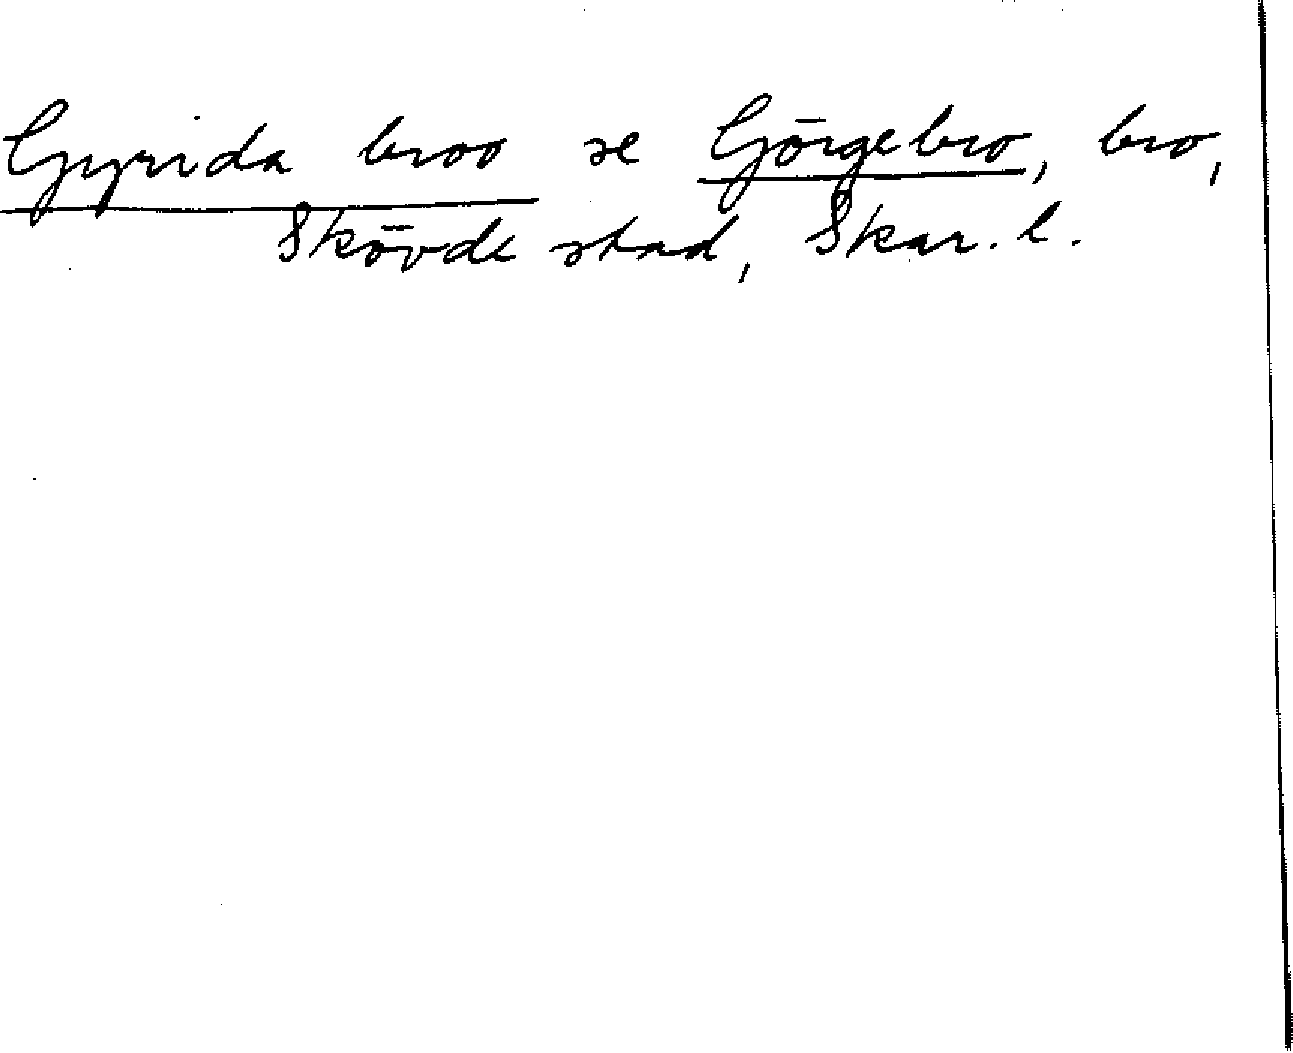 Gyrida broo se Görgebro, bro,
Skövde stad, Skar. l.